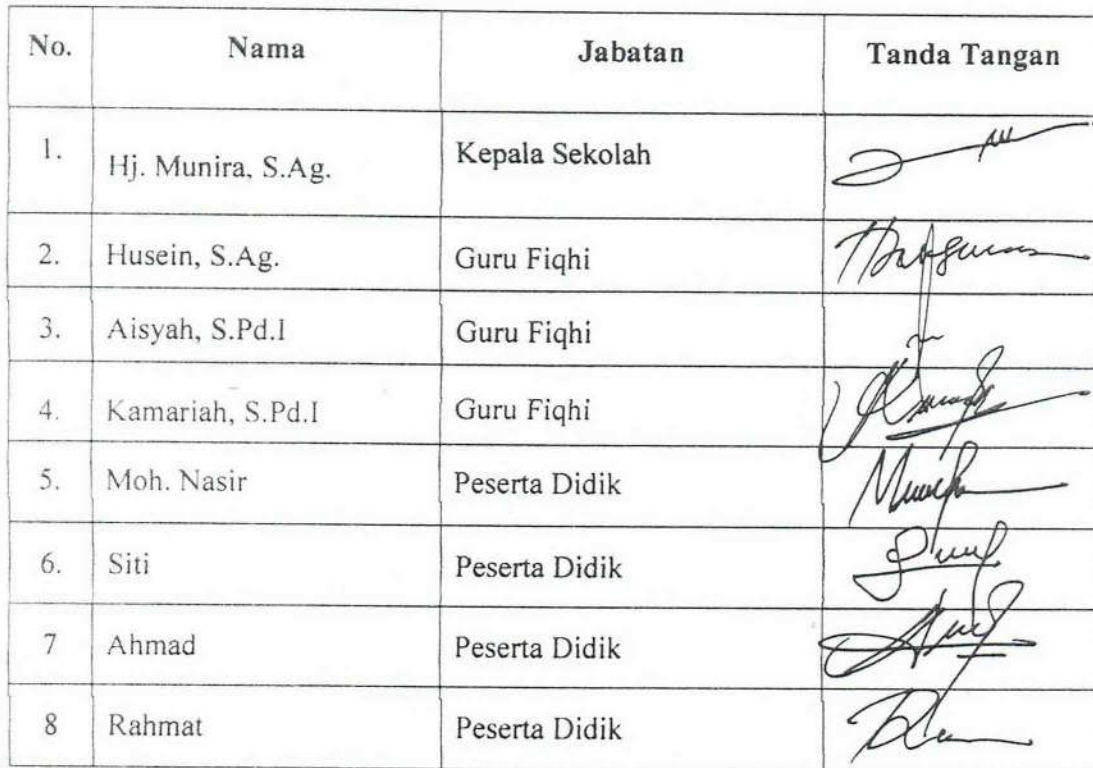 No. Nama Jabatan Tanda Tangan
1. Hj. Munira, S.Ag. Kepala Sekolah
2. Husein, S.Ag. Guru Fiqhi
3. Aisyah, S.Pd.I Guru Fiqhi
4. Kamariah, S.Pd.I Guru Fiqhi
5. Moh. Nasir Peserta Didik
6. Siti Peserta Didik
7 Ahmad Peserta Didik
8 Rahmat Peserta Didik